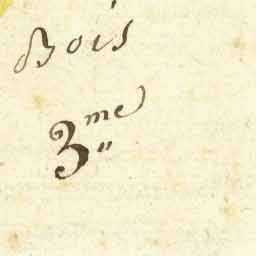 Bois
3me